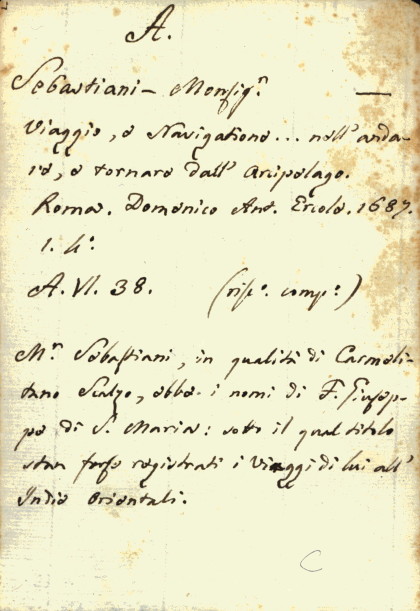 A.
Sebastiani - Monsigr. —
Viaggio, e Navigatione... nell' anda-
re, e tornare dall' Arcipelago.
Roma. Domenico Ant. Ercole. 1687.
1. 4º.
A. VI. 38. (risc.º comp.º)
Mr. Sebastiani, in qualità di Carmeli-
tano Scalzo, ebbe i nomi di F. Giusep-
pe di S. Maria: sotto il qual titolo
stan forse registrati i Viaggi di lui all'
Indie Orientali.
C